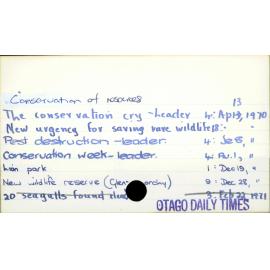 Conservation of resources
13
The conservation cry - leader 4: Ap 13, 1970
New urgency for saving rare wildlife
Pest destruction - leader. 4: Je 8, "
Conservation week - leader. 4: Au. 1, "
Lion park 1: Dec 19, "
New wildlife reserve (Glenorchy) 9: Dec 28, "
20 seagulls found dead 3: Feb 22 1971
OTAGO DAILY TIMES